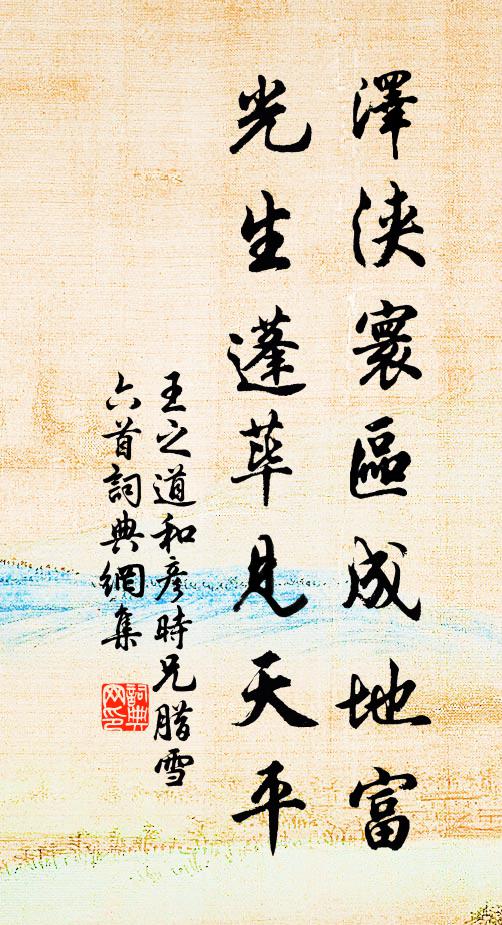 澤浹寰區成地富
光生蓬蓽見天平
王之道和彦時兄腊雪
六首詞典網集
詞典網印